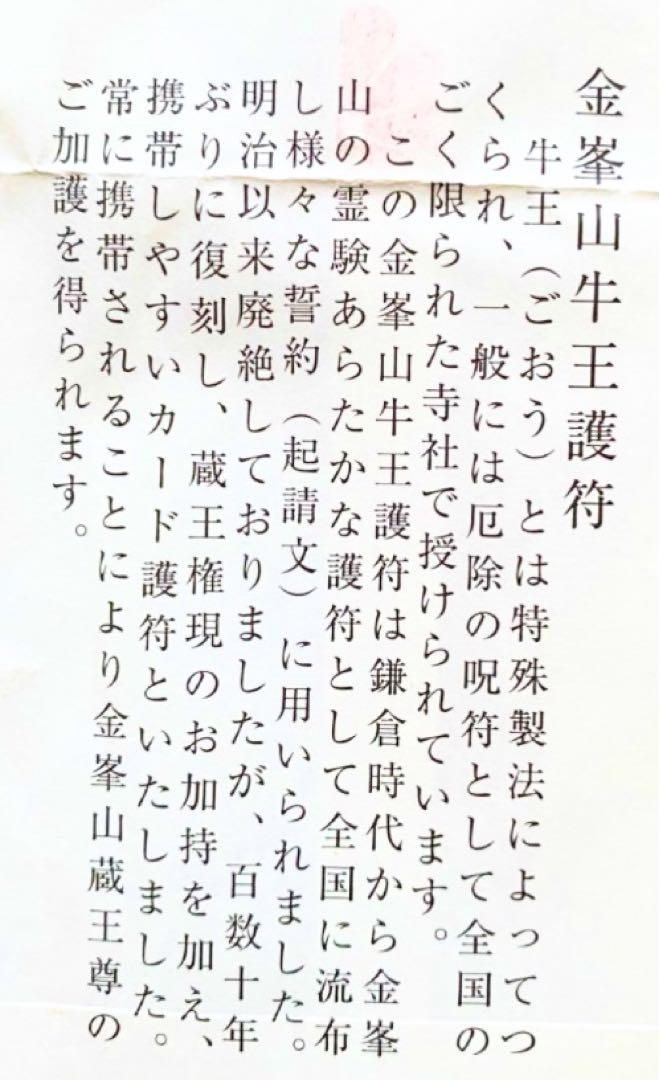 金峯山牛王護符
牛王（ごおう）とは特殊製法によってつ
くられ、一般には厄除の呪符として全国の
ごく限られた寺社で授けられています。
この金峯山牛王護符は鎌倉時代から金峯
山の霊験あらたかな護符として全国に流布
し様々な誓約（起請文）に用いられました。
明治以来廃絶しておりましたが、百数十年
ぶりに復刻し、蔵王権現のお加持を加え、
携帯しやすいカード護符といたしました。
常に携帯されることにより金峯山蔵王尊の
ご加護を得られます。